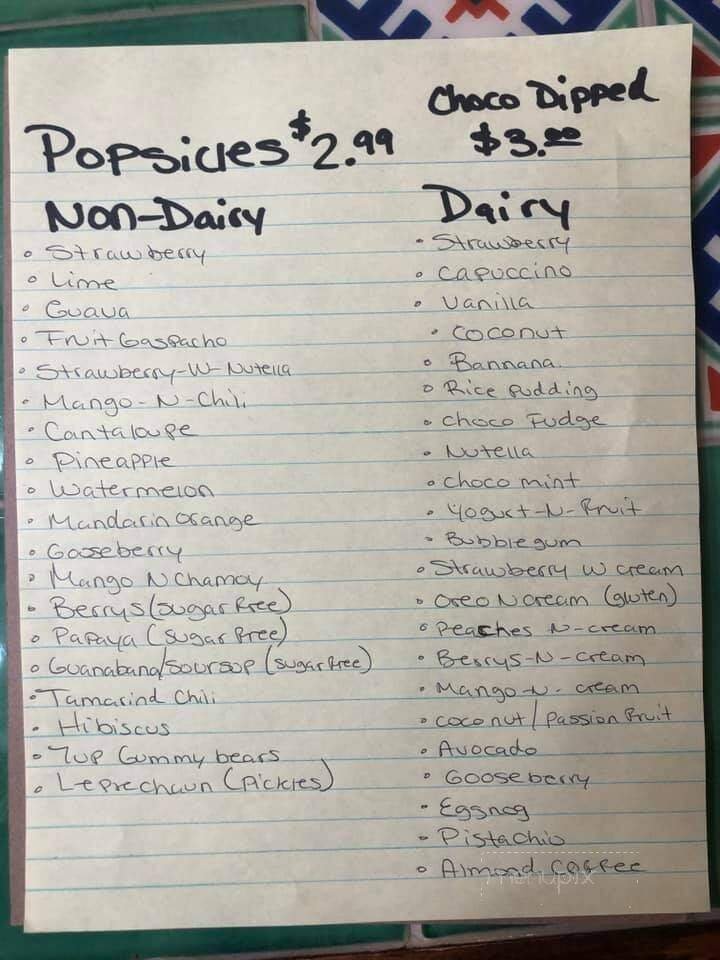 Choco Dipped
Popsicles $2.99
$3.00
Non-Dairy
• Strawberry
• Lime
• Guava
• Fruit Gaspacho
• Strawberry-W-Nutella
• Mango-N-Chili
• Cantaloupe
• Pineapple
• Watermelon
• Mandarin orange
• Gooseberry
• Mango N Chamoy
• Berrys (sugar free)
• Papaya (sugar free)
• Guanabana/soursop (sugar free)
• Tamarind Chili
• Hibiscus
• 7up Gummy bears
• Leprechaun (Pickles)
Dairy
• Strawberry
• Capuccino
• Vanilla
• Coconut
• Bannana.
• Rice pudding
• Choco Fudge
• Nutella
• Choco mint
• Yogurt-N-Fruit
• Bubblegum
• Strawberry W cream
• Oreo N cream (gluten)
• Peaches N-cream
• Berrys-N-cream
• Mango-N-cream
• coconut/passion fruit
• Avocado
• Gooseberry
• Eggsnog
• Pistachio
• Almond coffee
menupix